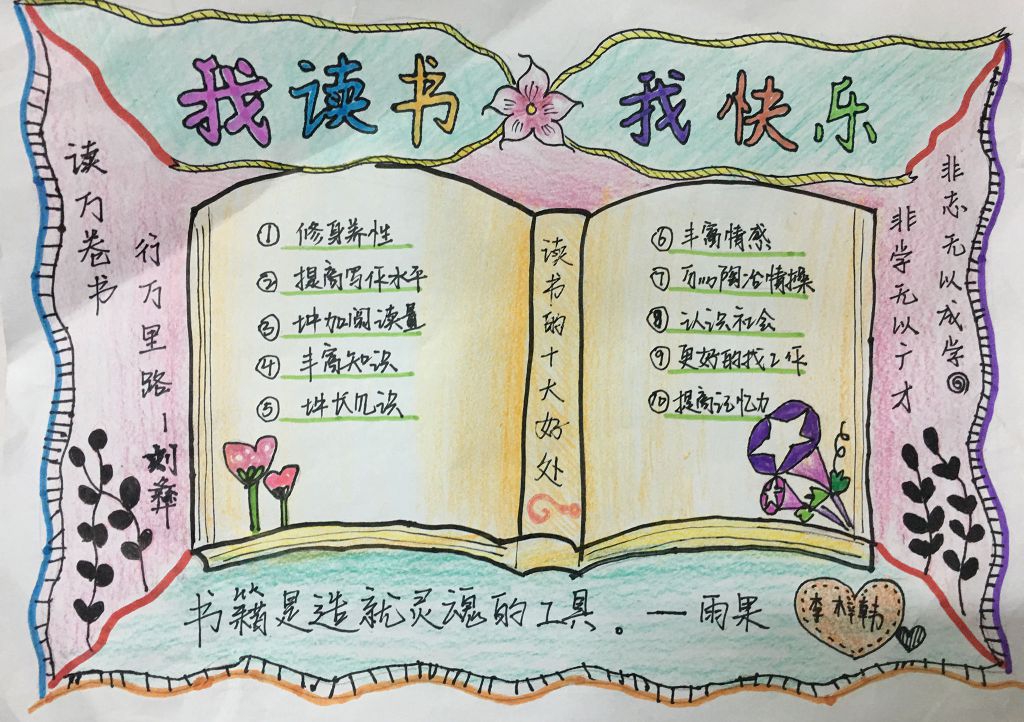 我读书 我快乐
读万卷书
行万里路—刘彝
① 修身养性
② 提高写作水平
③ 增加阅读量
④ 丰富知识
⑤ 增长见识
读书的十大好处
⑥ 丰富情感
⑦ 可以陶冶情操
⑧ 认识社会
⑨ 更好的找工作
⑩ 提高记忆力
非学无以广才
非志无以成学。
书籍是造就灵魂的工具。—雨果
李梓韩